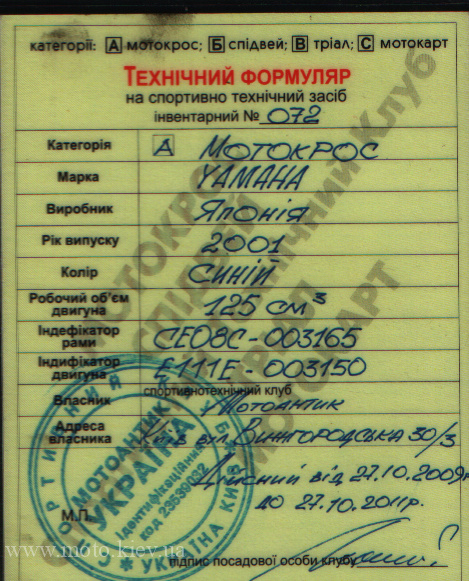 категорії: А мотокрос; Б спідвей; В тріал; С мотокарт
ТЕХНІЧНИЙ ФОРМУЛЯР
на спортивно технічний засіб
інвентарний № 072
Категорія А МОТОКРОС
Марка YAMAHA
Виробник Японія
Рік випуску 2001
Колір СИНІЙ
Робочий об'єм двигуна 125 см³
Індефікатор рами CE08C-003165
Индифікатор двигуна E111E-003150
спортивнотехнічний клуб
Власник Мотоантик
Адреса власника Київ вул. Вишгородська 30/3
Дійсний від 27.10.2009р
до 27.10.2011р.
М.П.
МОТОАНТИК
УКРАЇНА
ідентифікаційний
код 23539032
УКРАЇНА КИЇВ
www.moto.kiev.ua
підпис посадової особи клубу
МОТОКРОС
СПІДВЕЙ
ТРІАЛ
МОТОКАРТ